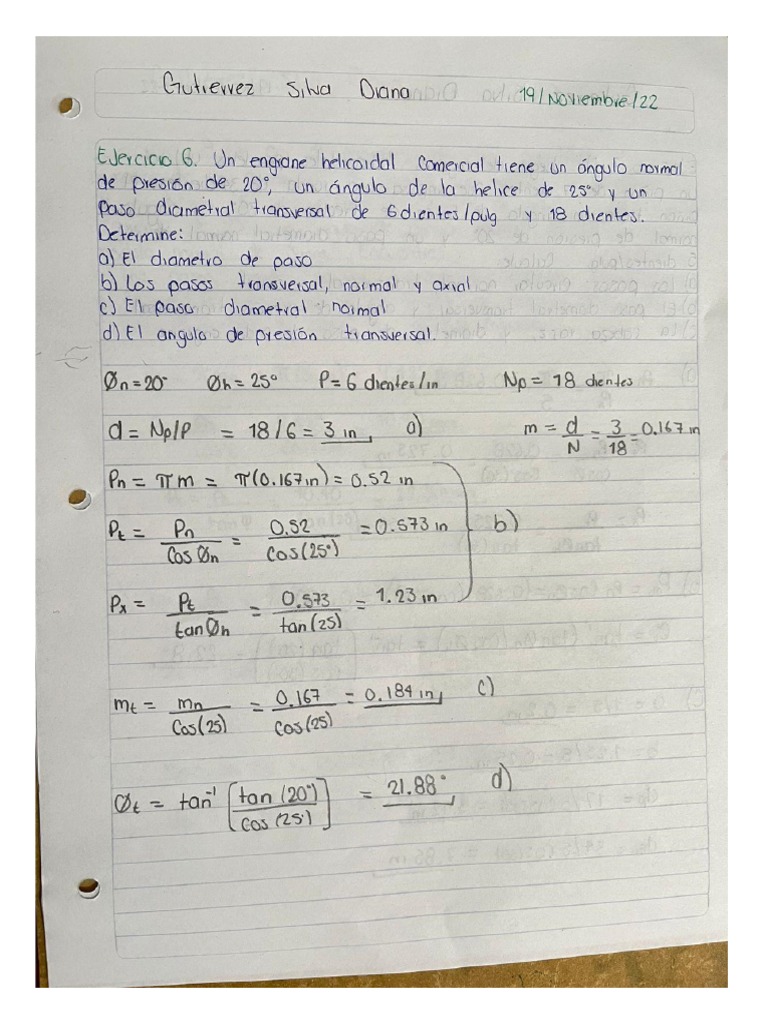 Gutierrez Silva Diana 19/Noviembre/22
Ejercicio 6. Un engrane helicoidal comercial tiene un ángulo normal
de presión de 20°, un ángulo de la helice de 25° y un
paso diamétral transversal de 6 dientes/pulg y 18 dientes.
Determine:
a) El diametro de paso
b) Los pasos transversal, normal y axial
c) El paso diametral normal
d) El angulo de presión transversal.
Øn = 20° Øh = 25° P = 6 dientes/in Np = 18 dientes
d = Np/P = 18/6 = 3 in, a) m = d/N = 3/18 = 0.167 in
Pn = πm = π(0.167in) = 0.52 in
Pt = Pn/Cos Øn = 0.52/cos(25°) = 0.573 in b)
Px = Pt/tan Øh = 0.573/tan(25) = 1.23 in
mt = mn/Cos(25) = 0.167/cos(25) = 0.184 in, c)
Øt = tan⁻¹ [tan(20°)/cos(25°)] = 21.88°, d)